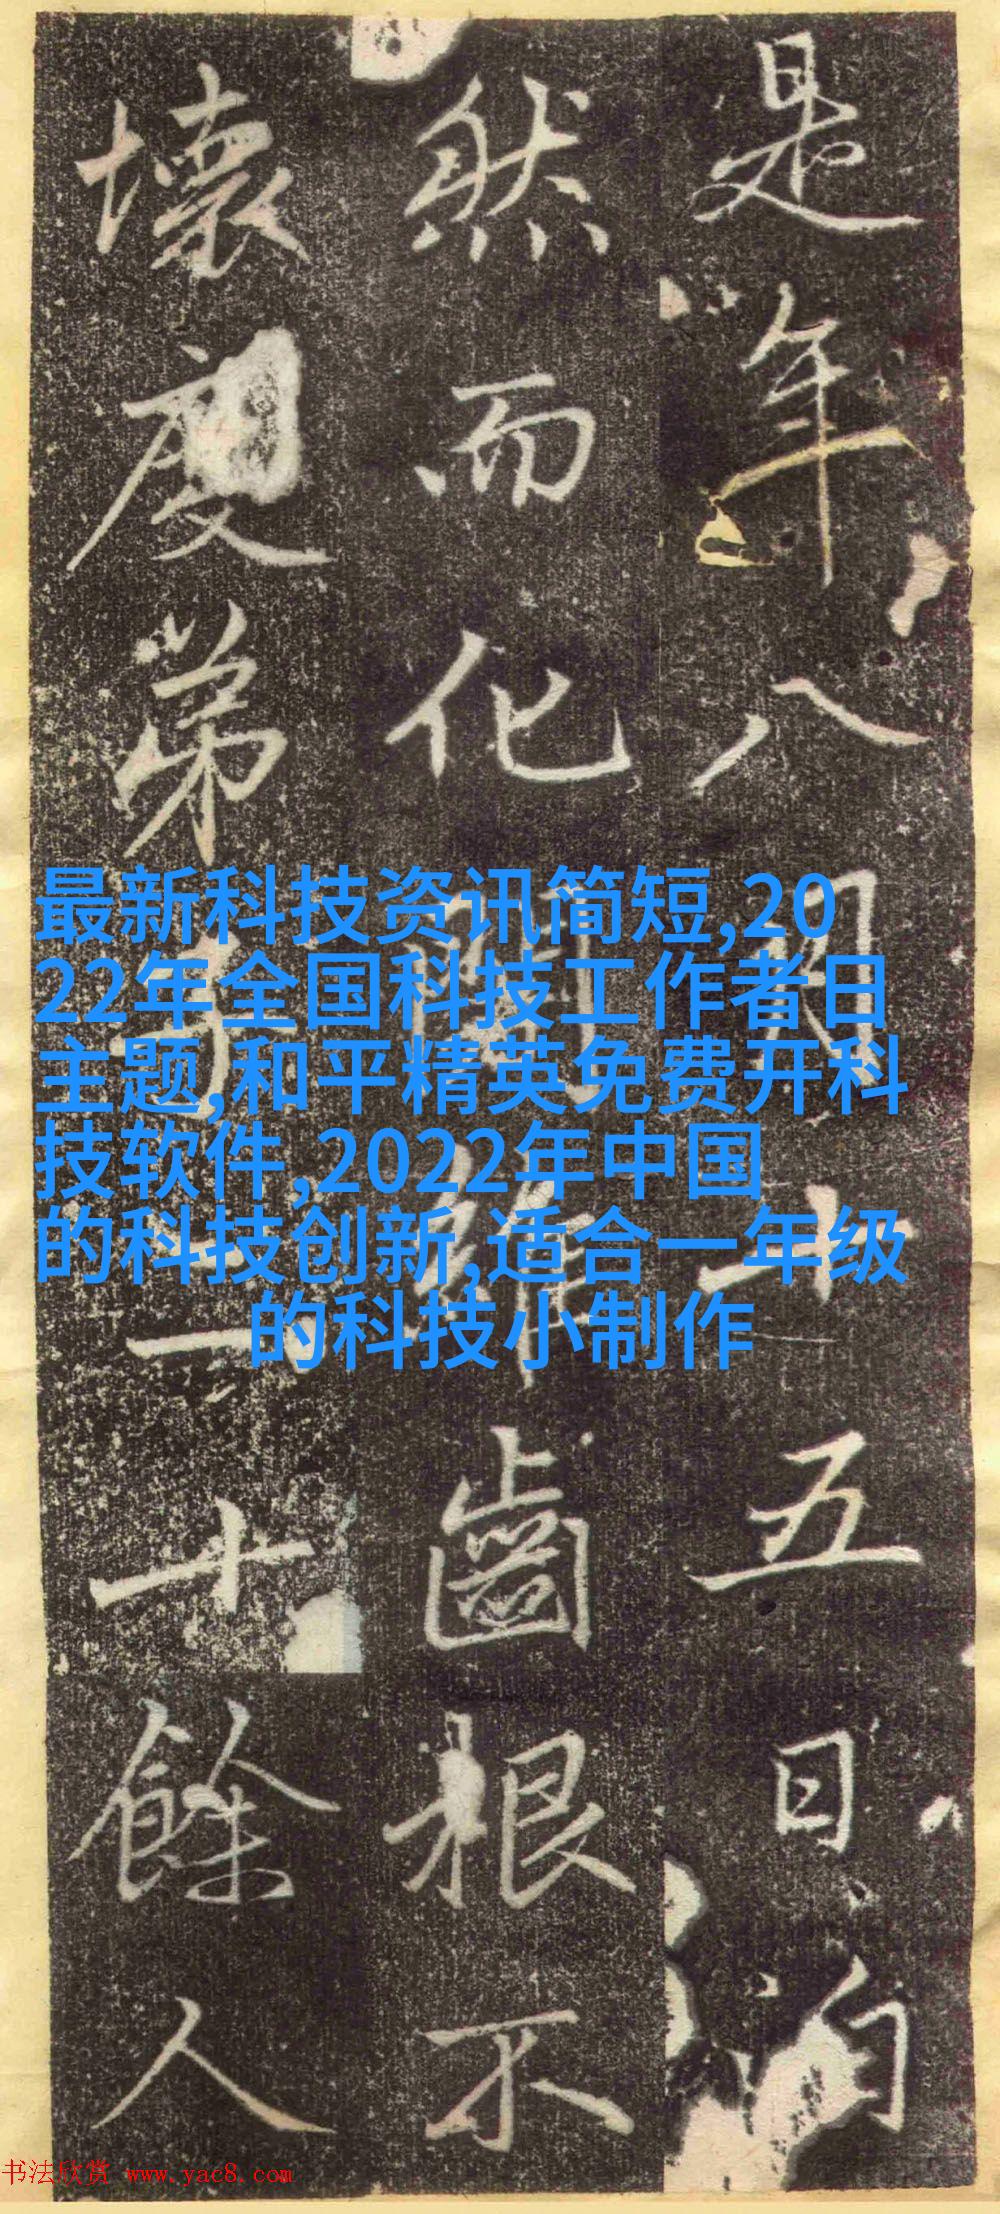 是年八月十五日
然而化齒根不
壞度弟子十餘人
最新科技资讯简短,20
22年全国科技工作者日
主题,和平精英免费开科
技软件,2022年中国
的科技创新,适合一年级
的科技小制作
书法欣赏 www.yac8.com